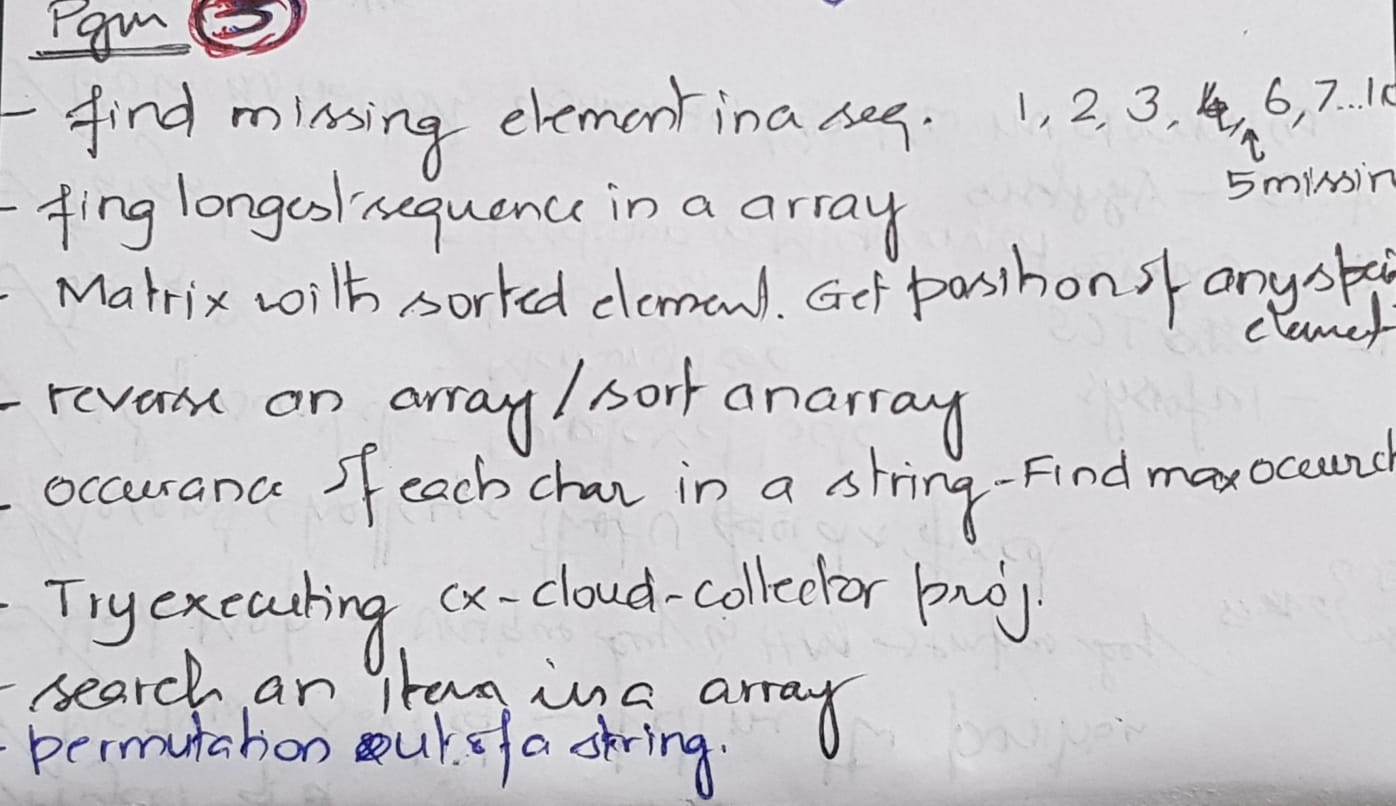 Pgm 3
- find missing element in a seq. 1, 2, 3, 4, 6, 7...10
5 missin
- fing longest sequence in a array
- Matrix with sorted element. Get position of any spei
elemet
- reverse an array / sort an array
- occurance of each char in a string - Find max occurc
- Try executing cx-cloud-collector proj.
- search an item in a array
- permutation out of a string.